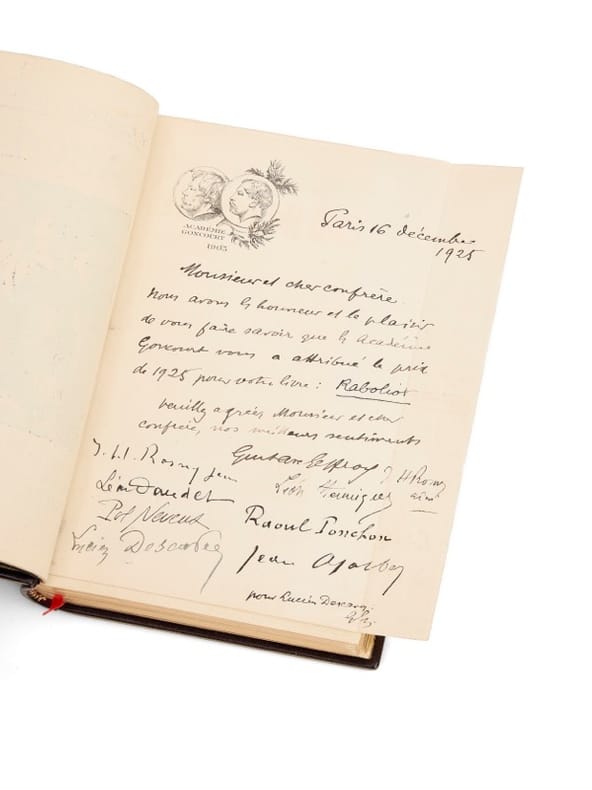 ACADÉMIE
GONCOURT
1903
Paris 16 décembre
1925
Monsieur et cher confrère
Nous avons l'honneur et le plaisir
de vous faire savoir que l'Académie
Goncourt vous a attribué le prix
de 1925 pour votre livre : Raboliot
Veuillez agréer Monsieur et cher
confrère, nos meilleurs sentiments
J.H. Rosny jeune
Gustave Geffroy
J H Rosny
aîné
Léon Daudet
Léon Hennique
Pol Neveux
Raoul Ponchon
Lucien Descaves
Jean Ajalbert
pour Lucien Descaves